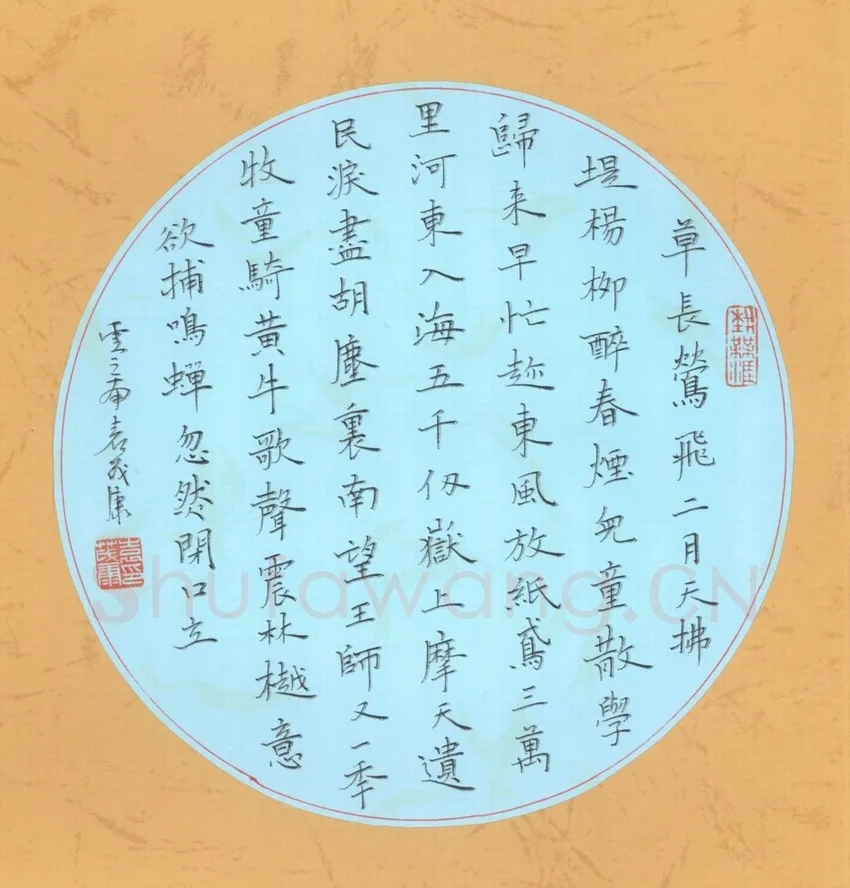 草長鶯飛二月天拂
堤楊柳醉春煙兒童散學
歸来早忙趂東風放紙鳶三萬
里河東入海五千仞嶽上摩天遺
民淚盡胡塵裏南望王師又一秊
牧童騎黄牛歌聲震林樾意
欲捕鳴蟬忽然閉口立
雲之齋袁茂康
袁印茂康
Shufawang.CN